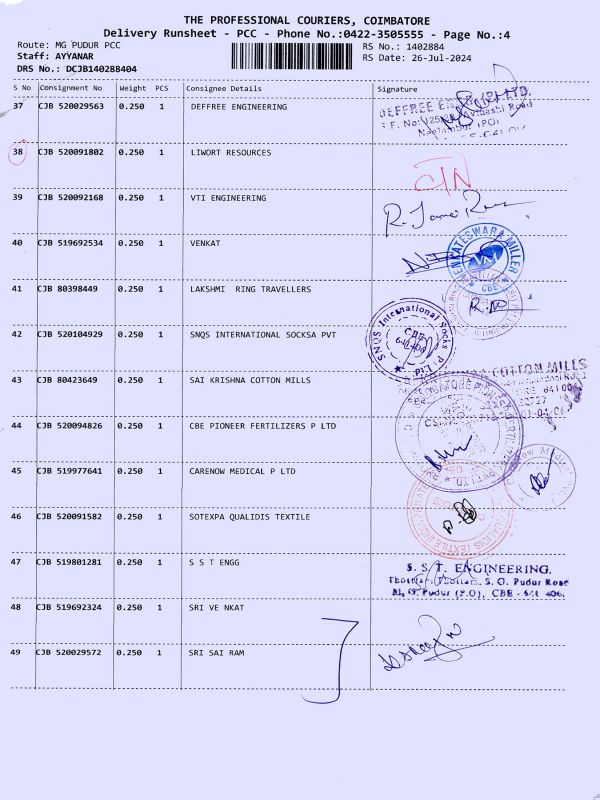 THE PROFESSIONAL COURIERS, COIMBATORE
Delivery Runsheet - PCC - Phone No.:0422-3505555 - Page No.:4
Route: MG PUDUR PCC RS No.: 1402884
Staff: AYYANAR RS Date: 26-Jul-2024
DRS No.: DCJB140288404
S No Consignment No Weight PCS Consignee Details Signature
37 CJB 520029563 0.250 1 DEFFREE ENGINEERING
38 CJB 520091802 0.250 1 LIWORT RESOURCES
39 CJB 520092168 0.250 1 VTI ENGINEERING
40 CJB 519692534 0.250 1 VENKAT
41 CJB 80398449 0.250 1 LAKSHMI RING TRAVELLERS
42 CJB 520104929 0.250 1 SNQS INTERNATIONAL SOCKSA PVT
43 CJB 80423649 0.250 1 SAI KRISHNA COTTON MILLS
44 CJB 520094826 0.250 1 CBE PIONEER FERTILIZERS P LTD
45 CJB 519977641 0.250 1 CARENOW MEDICAL P LTD
46 CJB 520091582 0.250 1 SOTEXPA QUALIDIS TEXTILE
47 CJB 519801281 0.250 1 S S T ENGG
S. S. T. ENGINEERING.
Thottam, S. G. Pudur Road
Pudur (P.O), CBE - 641 406.
48 CJB 519692324 0.250 1 SRI VE NKAT
49 CJB 520029572 0.250 1 SRI SAI RAM
SNQS International Socks P Ltd.
COTTON MILLS